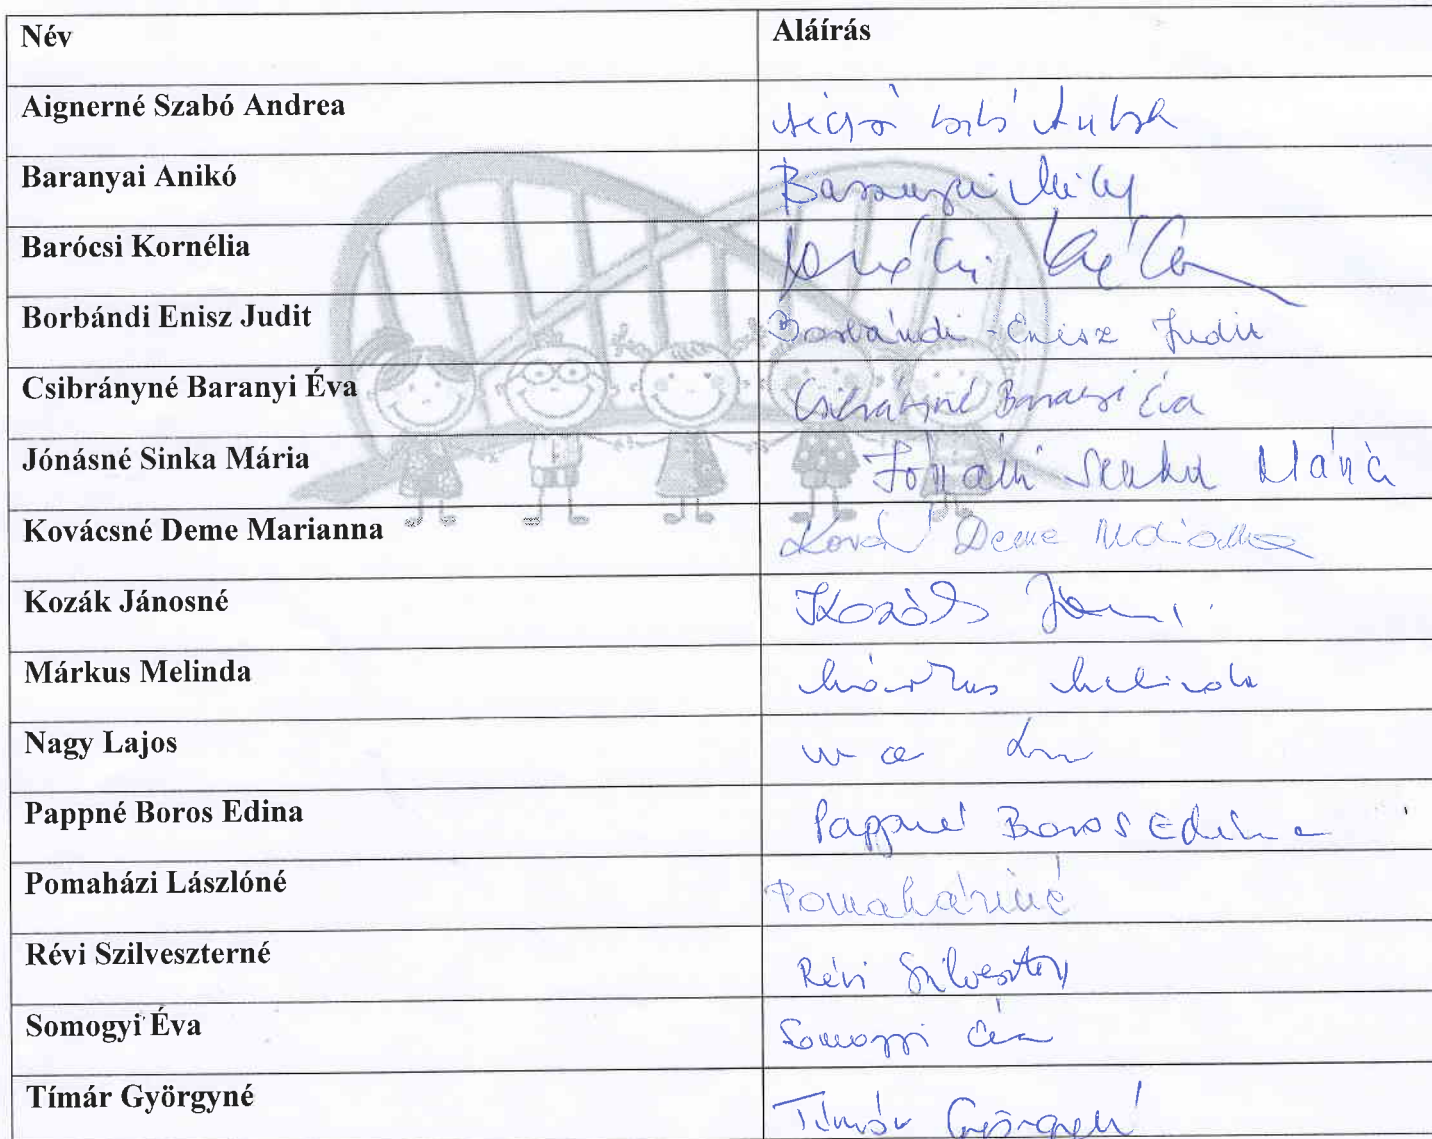 Név Aláírás
Aignerné Szabó Andrea
Baranyai Anikó Baranyai
Barócsi Kornélia
Borbándi Enisz Judit Borbándi-Enisz Judit
Csibrányné Baranyi Éva Csibrányné Baranyi Éva
Jónásné Sinka Mária Sinka Mária
Kovácsné Deme Marianna Deme Marianna
Kozák Jánosné Kozák
Márkus Melinda Márkus Melinda
Nagy Lajos
Pappné Boros Edina Pappné Boros Edina
Pomaházi Lászlóné Pomaháziné
Révi Szilveszterné Révi
Somogyi Éva Somogyi Éva
Tímár Györgyné Tímár Györgyné